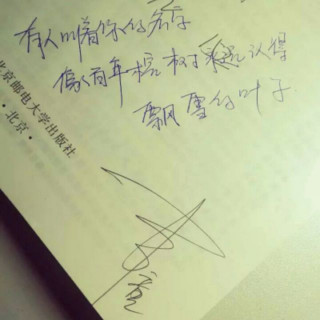 有人叫着你的名字
像百年榕树永远认得
飘雪的叶子
北京邮电大学出版社
·北京·